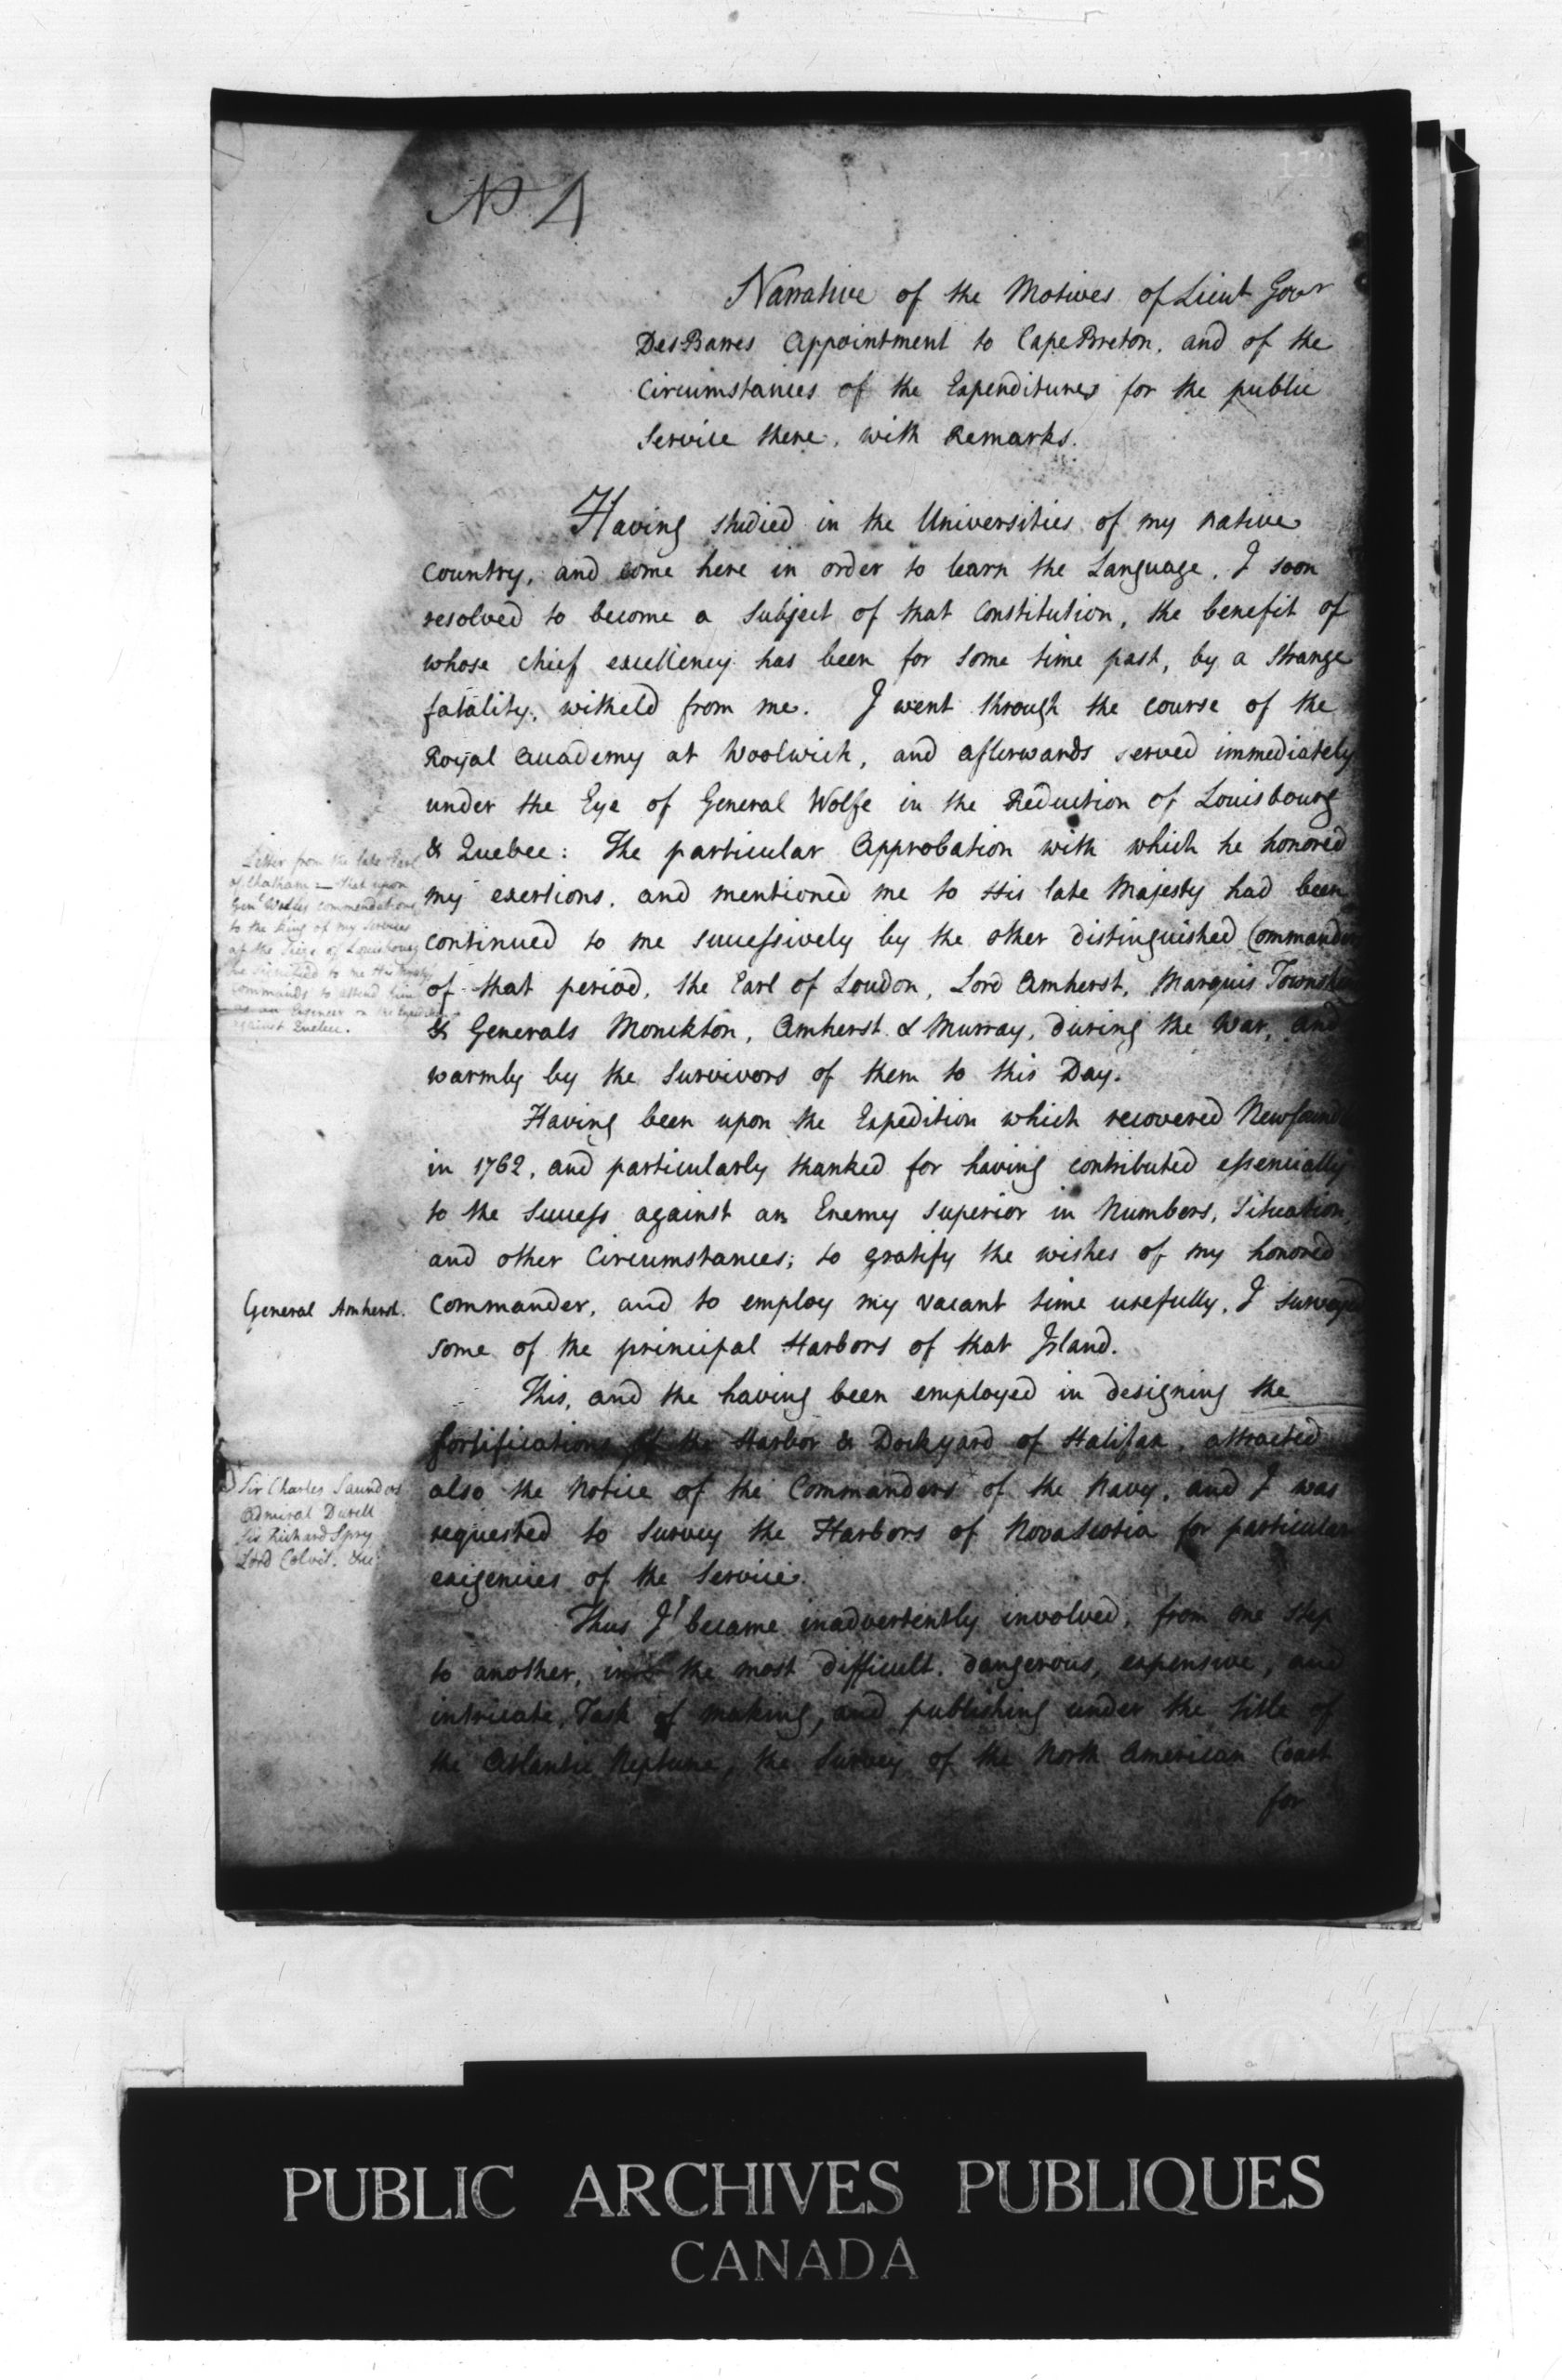 No 4
Narrative of the Motives of Lieut Govr
DesBarres Appointment to Cape Breton, and of the
Circumstances of the Expenditures for the public
Service there, with Remarks.
Having studied in the Universities of my native
Country, and come here in order to learn the Language, I soon
resolved to become a Subject of that Constitution, the benefit of
whose chief excellency has been for some time past, by a strange
fatality, witheld from me. I went through the course of the
Royal Academy at Woolwich, and afterwards served immediately
under the Eye of General Wolfe in the Reduction of Louisbourg
& Quebec: The particular Approbation with which he honored
my exertions, and mentioned me to His late Majesty had been
continued to me successively by the other distinguished Commanders
of that period, the Earl of Loudon, Lord Amherst, Marquis Townshe
& Generals Monckton, Amherst & Murray, during the War, and
warmly by the Survivors of them to this Day.
Letter from the late Earl
of Chatham — that upon
Genl Wolfes commendations
to the King of my Services
at the Siege of Louisbourg
he signified to me His Majestys
Commands to attend him
as an Engineer on the Expedition
against Quebec.
Having been upon the Expedition which recovered Newfound
in 1762, and particularly thanked for having contributed essencially
to the Success against an Enemy superior in Numbers, Situation,
and other Circumstances; to gratify the wishes of my honored
General Amherst.
Commander, and to employ my vacant time usefully, I surveyed
some of the principal Harbors of that Island.
This, and the having been employed in designing the
fortifications of the Harbor & Dockyard of Halifax, attracted
also the Notice of the Commanders of the Navy, and I was
requested to Survey the Harbors of NovaScotia for particular
exigencies of the Service.
Sir Charles Saunders
Admiral Durell
Sir Richard Spry
Lord Colvil. &c
Thus I became inadvertently involved, from one step
to another, in the most difficult, dangerous, expensive, and
intricate, Task of making, and publishing under the title of
the Atlantic Neptune, the Survey of the North American Coast
for
PUBLIC ARCHIVES PUBLIQUES
CANADA